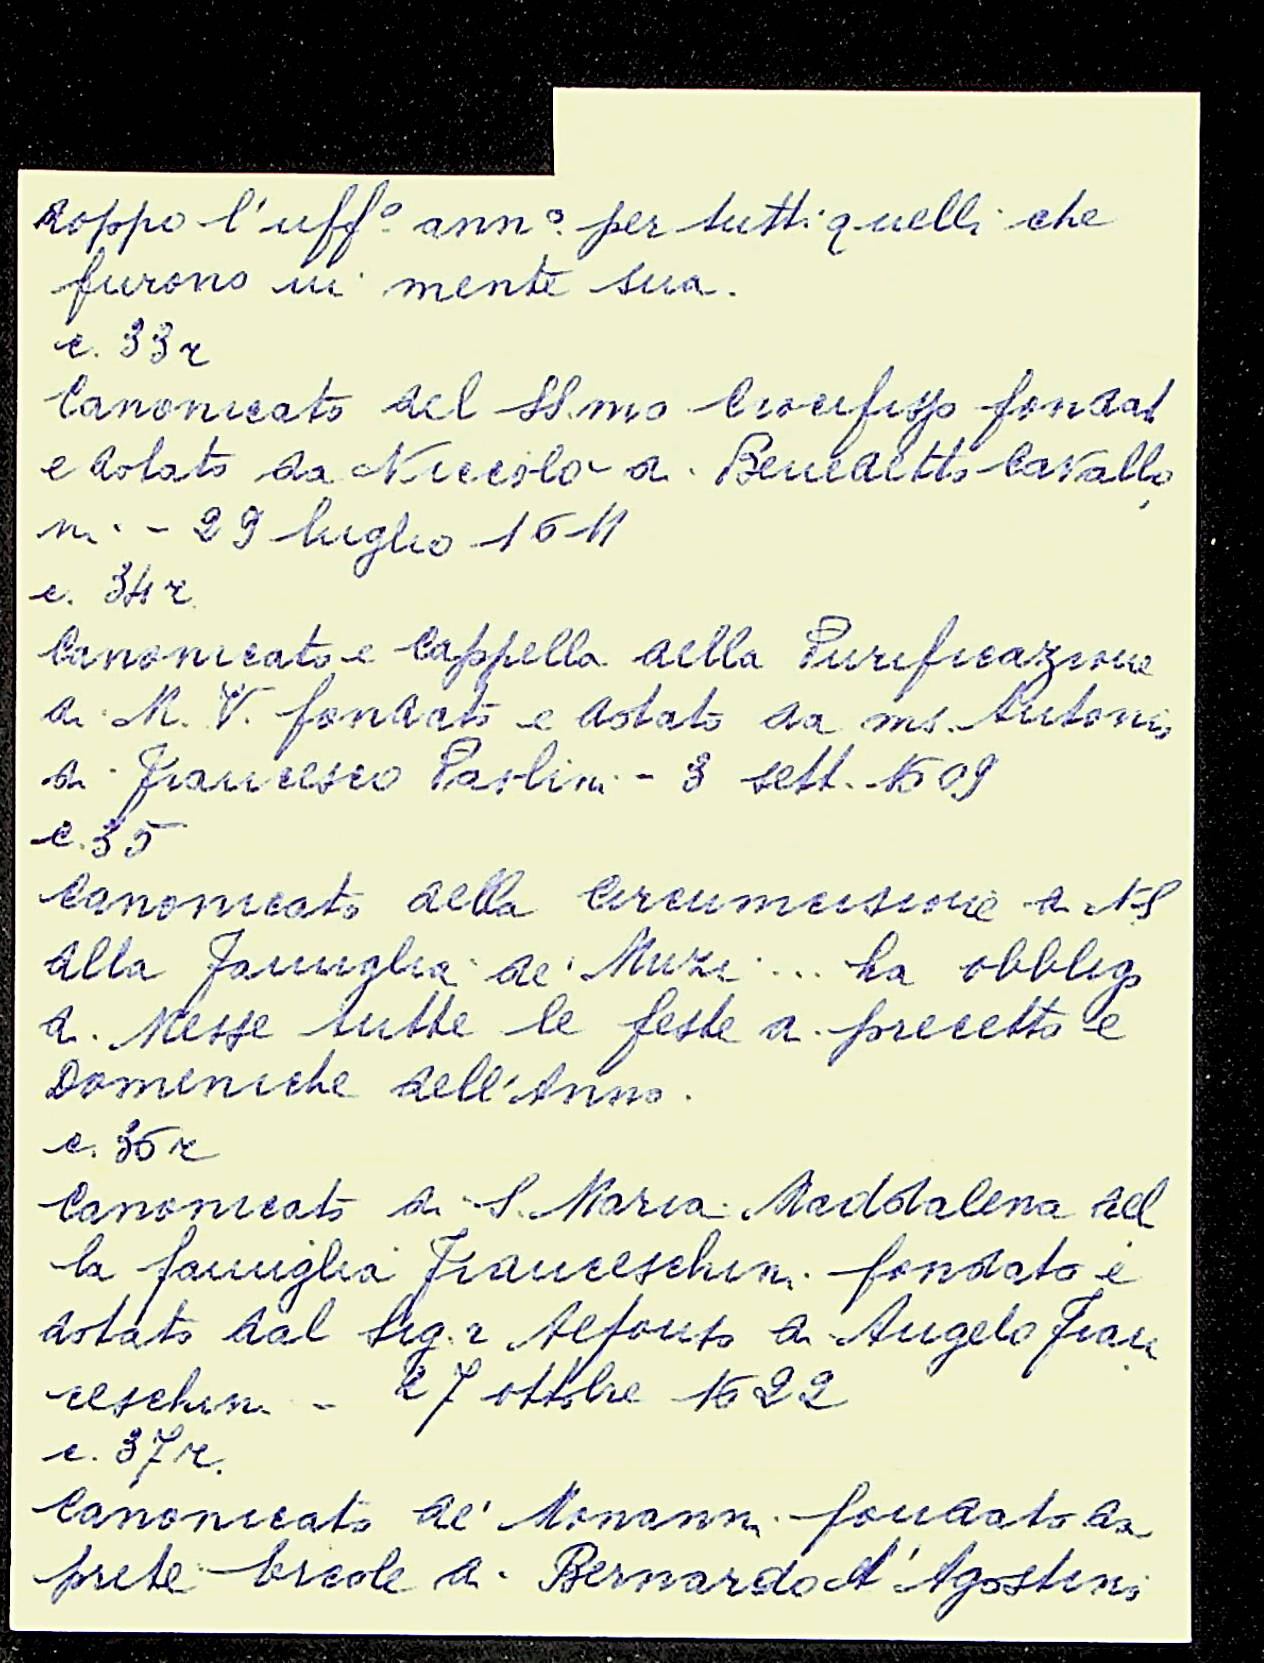 doppo l'uff.º ann.º per tutti quelli che
furono in mente sua.
c. 33r
Canonicato del SS.mo Crocifisso fondat
e dotato da Niccolò di Benedetto Cavallo
ni - 29 luglio 1611
c. 34r
Canonicato e Cappella della Purificazione
di M. V. fondato e dotato da ms. Antonio
di Francesco Paolini - 3 sett. 1609
c. 35
Canonicato della Circumcisione di N S
alla famiglia de' Muzi ... ha obbligo
di Messe tutte le feste di precetto e
Domeniche dell'Anno.
c. 36r
Canonicato di S. Maria Maddalena del
la famiglia Franceschini fondato e
dotato dal Sig.r Alfonso di Angelo Fran
ceschini - 27 ottobre 1622
c. 37r.
Canonicato de' Monanni fondato da
prete Ercole di Bernardo d'Agostini